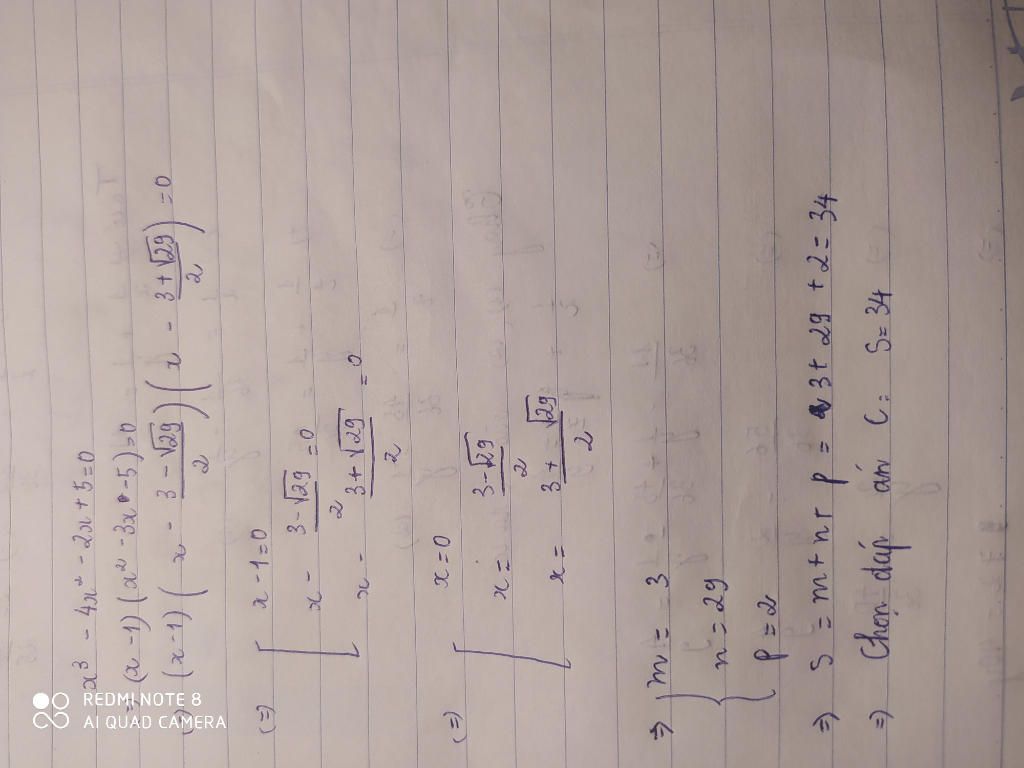 x³ - 4x² - 2x + 5 = 0
(=) (x - 1) (x² - 3x - 5) = 0
(=) (x - 1) ( x - \frac{3 - √29}{2} ) ( x - \frac{3 + √29}{2} ) = 0
(=) [ x - 1 = 0
x - \frac{3 - √29}{2} = 0
x - \frac{3 + √29}{2} = 0
(=) [ x = 0
x = \frac{3 - √29}{2}
x = \frac{3 + √29}{2}
=) { m = 3
n = 29
p = 2
=) S = m + n + p = 3 + 29 + 2 = 34
=) Chọn đáp án C: S = 34
REDMI NOTE 8
AI QUAD CAMERA